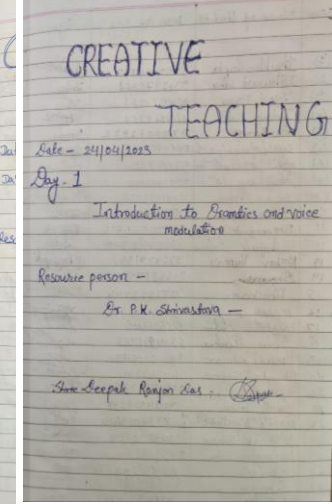 CREATIVE
TEACHING
Date - 24/04/2023
Day - 1
Introduction to Dramtics and voice
modulation
Resource person -
Dr. P.K. Shrivastava -
Deepak Ranjan Das